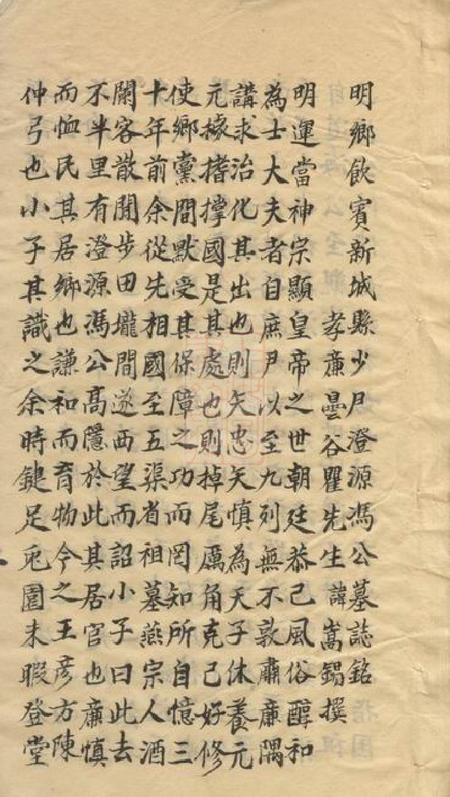 明鄉飲賓新城縣少尹澄源馮公墓誌銘
孝廉曇谷瞿先生諱嵩錫撰
明運當神宗顯皇帝之世朝廷恭己風俗醇和
為士大夫者自庶尹以至九列無不敦肅廉隅
講求治化其出也則矢忠矢慎為天子休養元
元撐撑國是其處也則掉尾厲角克己好修
使鄉黨間默受其保障之功而罔知所自憶三
十年前余從先相國至五渠省祖墓燕宗人酒
闌客散閒步田壠間遂西望而詔小子曰此去
不半里有澄源馮公高隱於此其居官也廉慎
而恤民其居鄉也謙和而育物今之王彦方陳
仲弓也小子其識之余時鍵足兎園未暇登堂